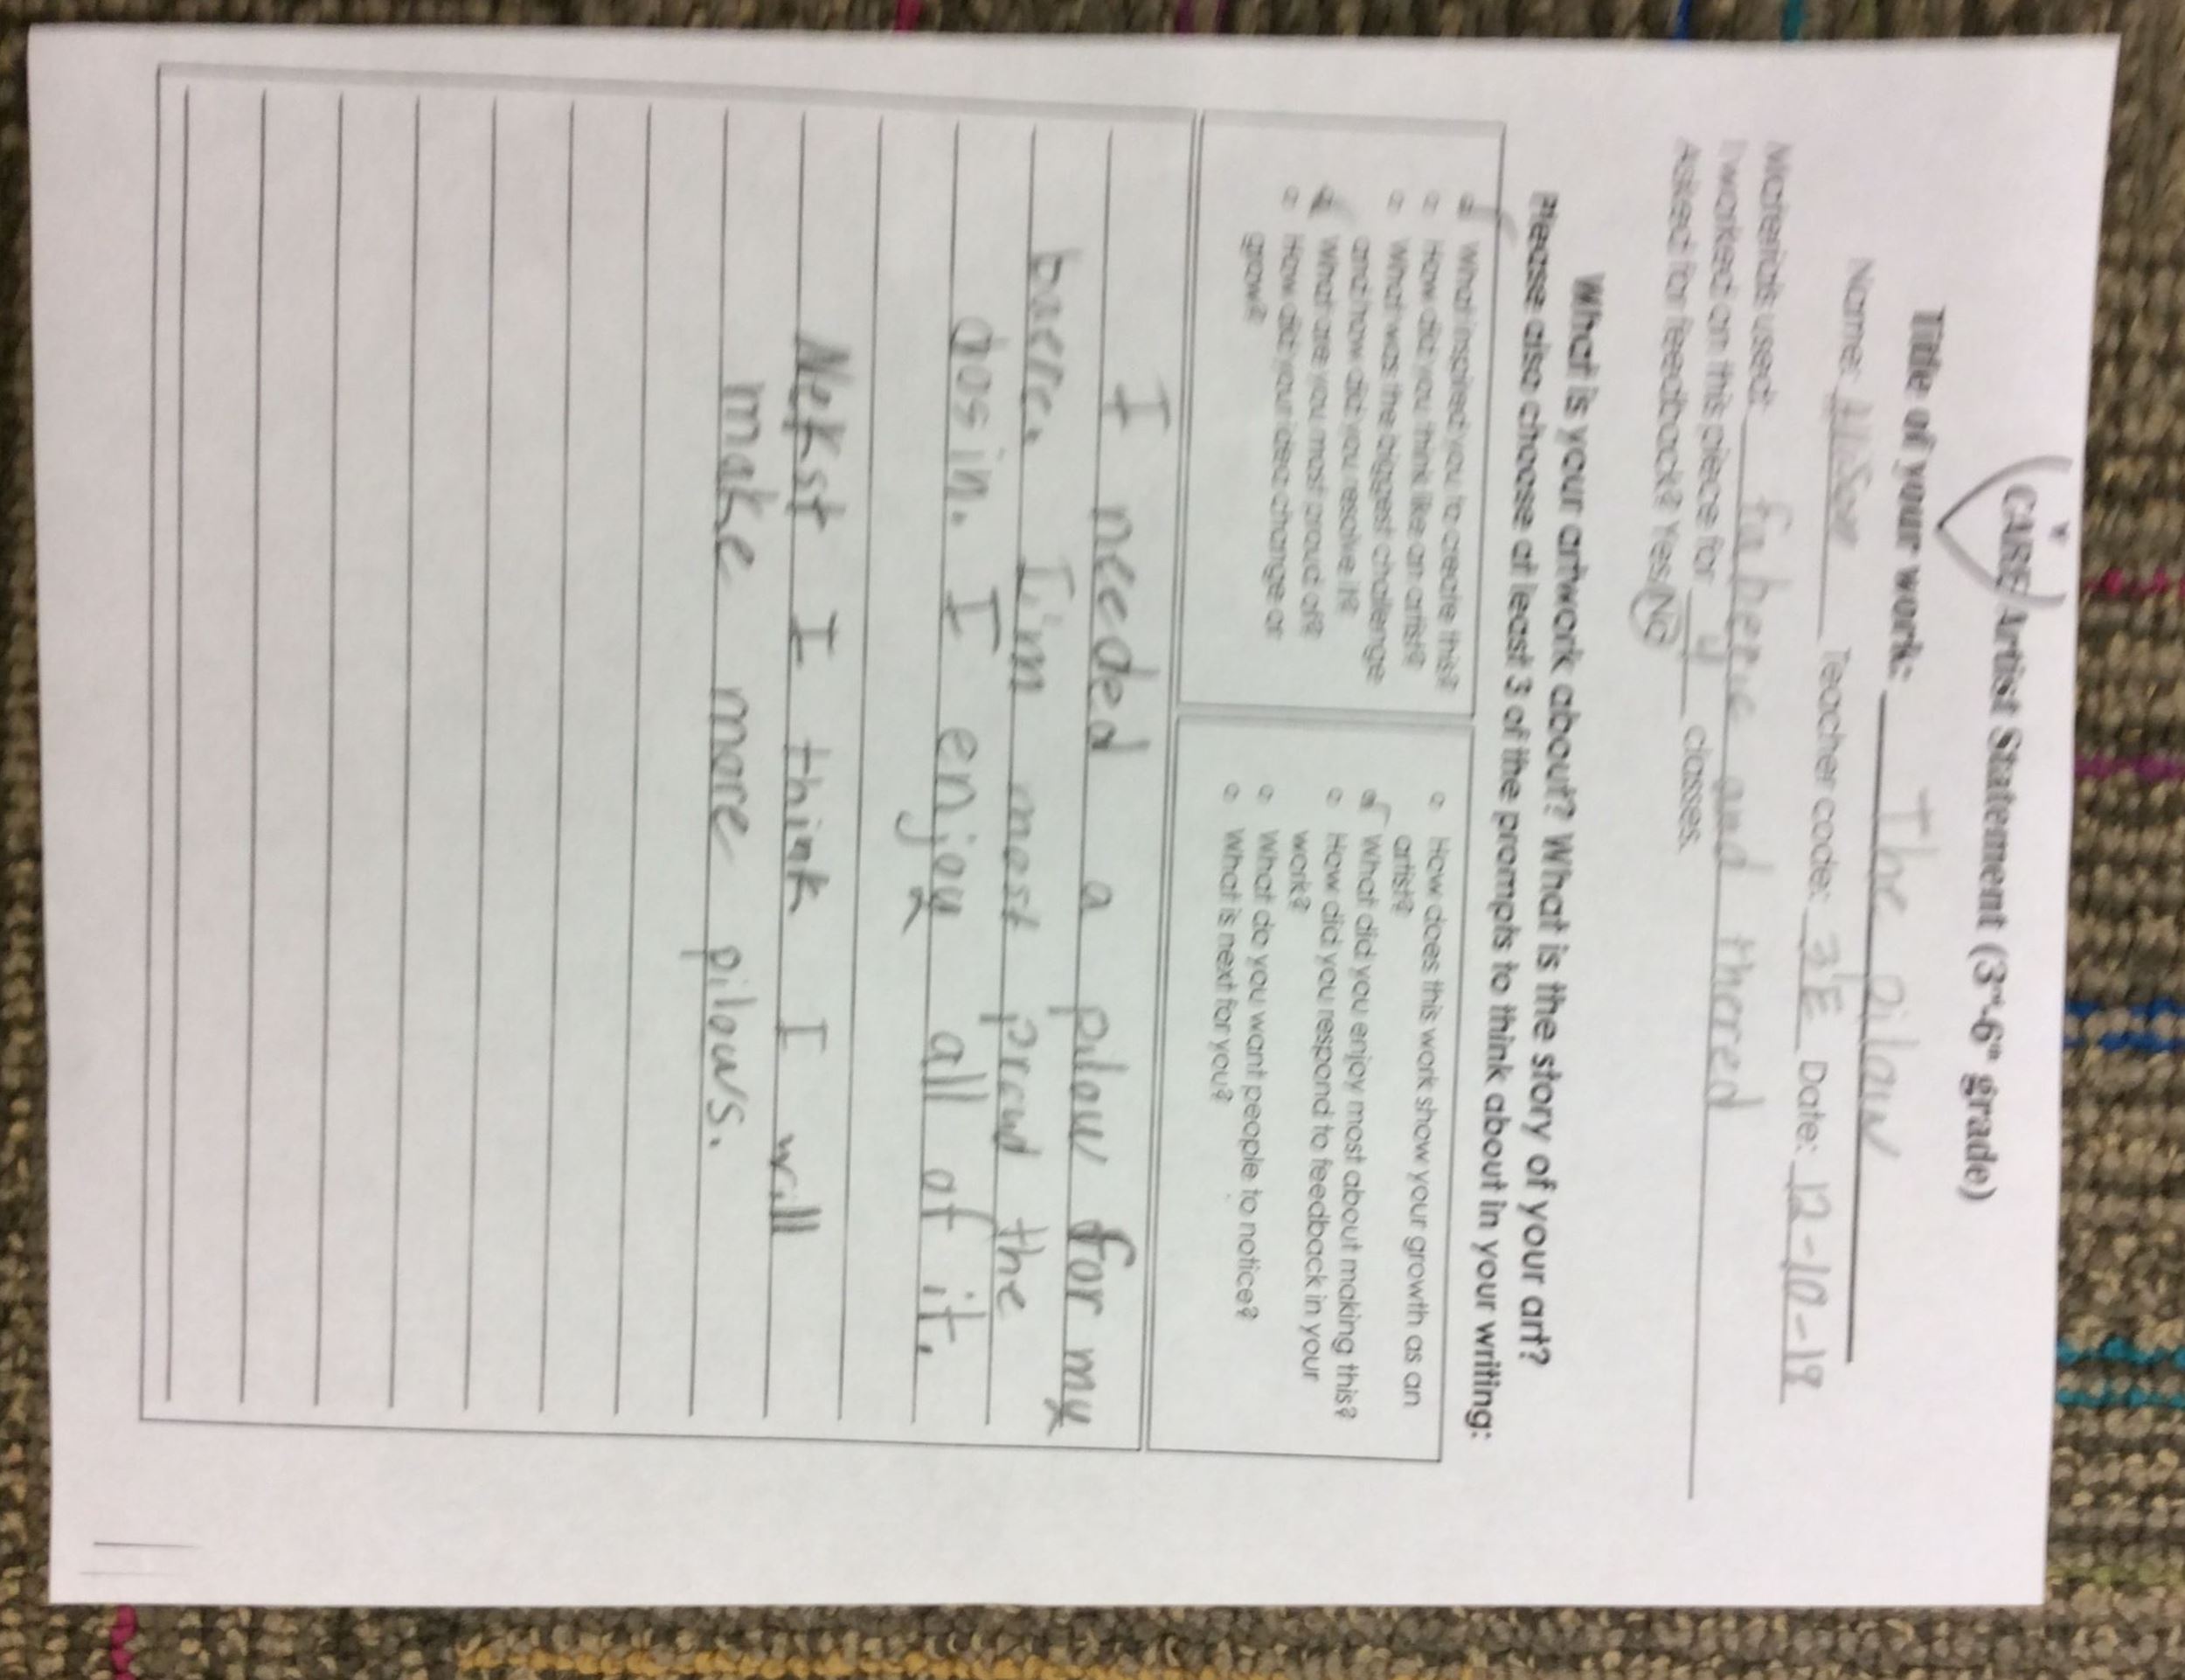 CARE Artist Statement (3rd-6th grade)
Title of your work: The pilow
Name: Teacher code: 3E Date: 12-10-18
Materials used: faberic and thered
I worked on this piece for classes.
Asked for feedback? Yes/No
What is your artwork about? What is the story of your art?
Please also choose at least 3 of the prompts to think about in your writing:
What inspired you to create this?
How did you think like an artist?
What was the biggest challenge
and how did you resolve it?
What are you most proud of?
How did your idea change or
grow?
How does this work show your growth as an
artist?
What did you enjoy most about making this?
How did you respond to feedback in your
work?
What do you want people to notice?
What is next for you?
I needed a pilow for my
I'm most prowd the
I enjoy all of it.
Nekst I think I will
make more pilows.